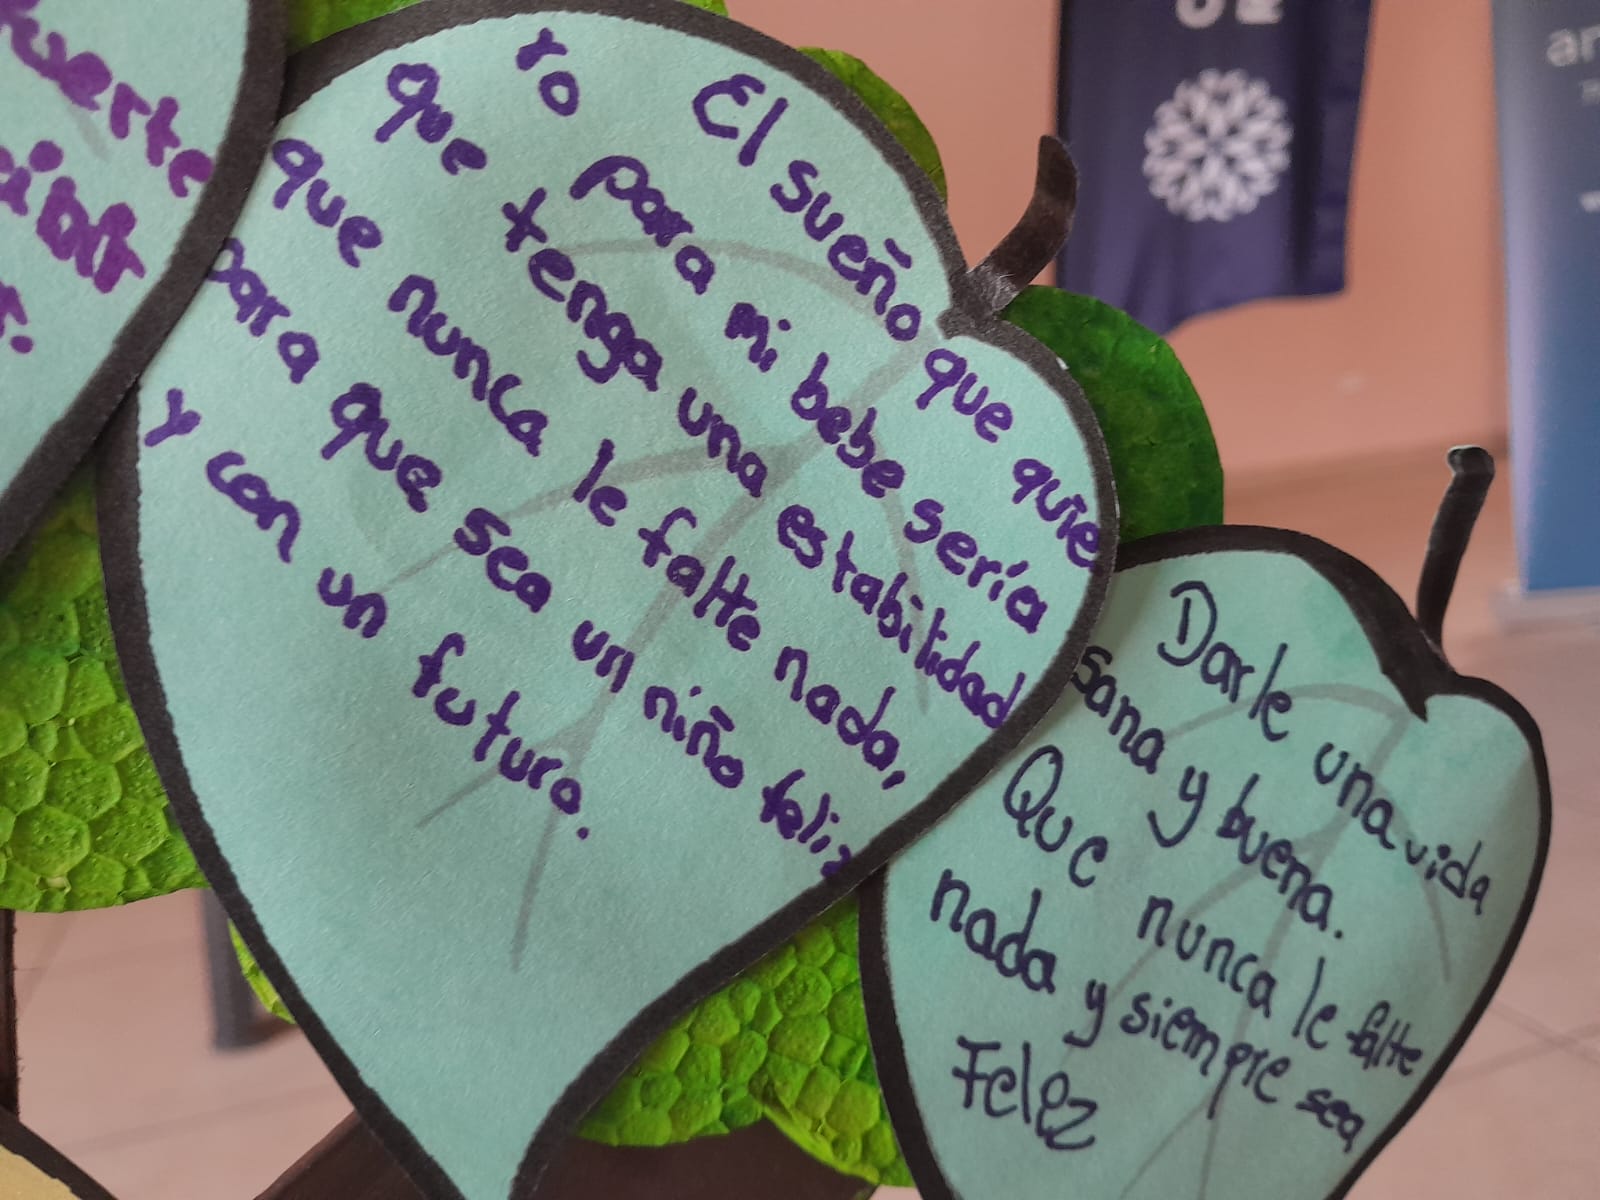 El sueño que quie
ro para mi bebe sería
que tenga una estabilidad
que nunca le falte nada,
para que sea un niño feliz
y con un futuro.
Darle una vida
sana y buena.
Que nunca le falte
nada y siempre sea
Feliz